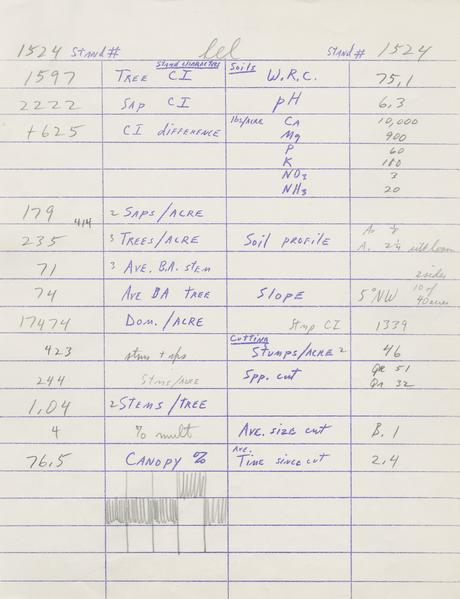 1524 Stand # lel Stand # 1524
Stand characters Soils
1597 Tree CI W.R.C. 75.1
2222 Sap CI pH 6.3
+625 CI difference lbs/acre CA 10,000
Mg 900
P 60
K 180
NO3 3
NH3 20
179 414 2 Saps/acre
235 3 Trees/acre Soil profile
71 3 Ave. B.A. stem 2 sides
74 Ave BA tree Slope 5° NW 10 of 40 acres
17474 Dom./acre Stmp CI 1339
Cutting
423 stms + sps Stumps/acre 2 46
244 Stms/acre Spp. cut Qr 51
Qa 32
1.04 2 Stems/tree
4 % mult Ave. size cut B.1
76.5 Canopy % Ave. Time since cut 2.4